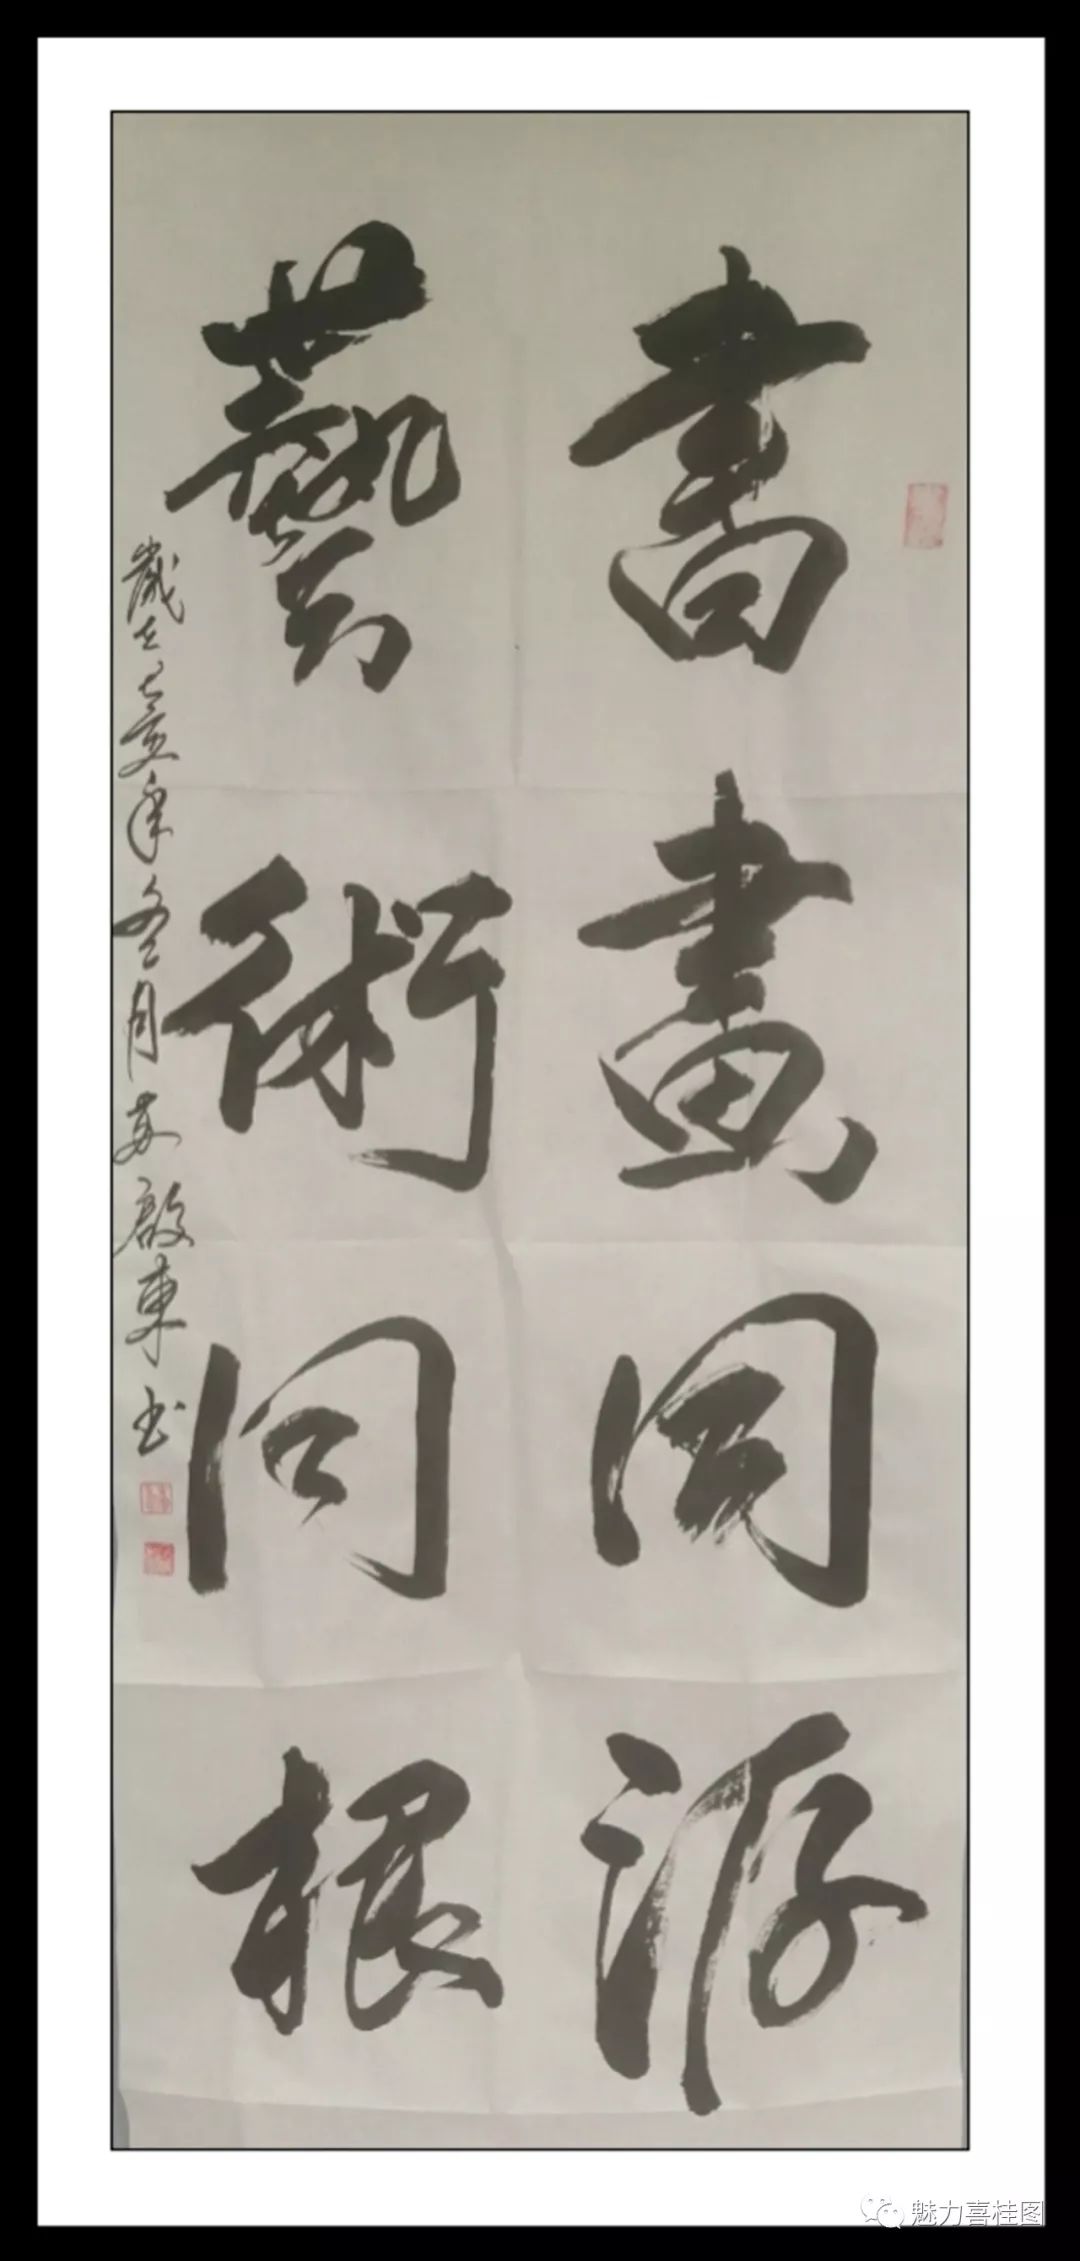 書畫同源
藝術同根
歲在己亥年冬月苏啟東书
魅力喜桂图